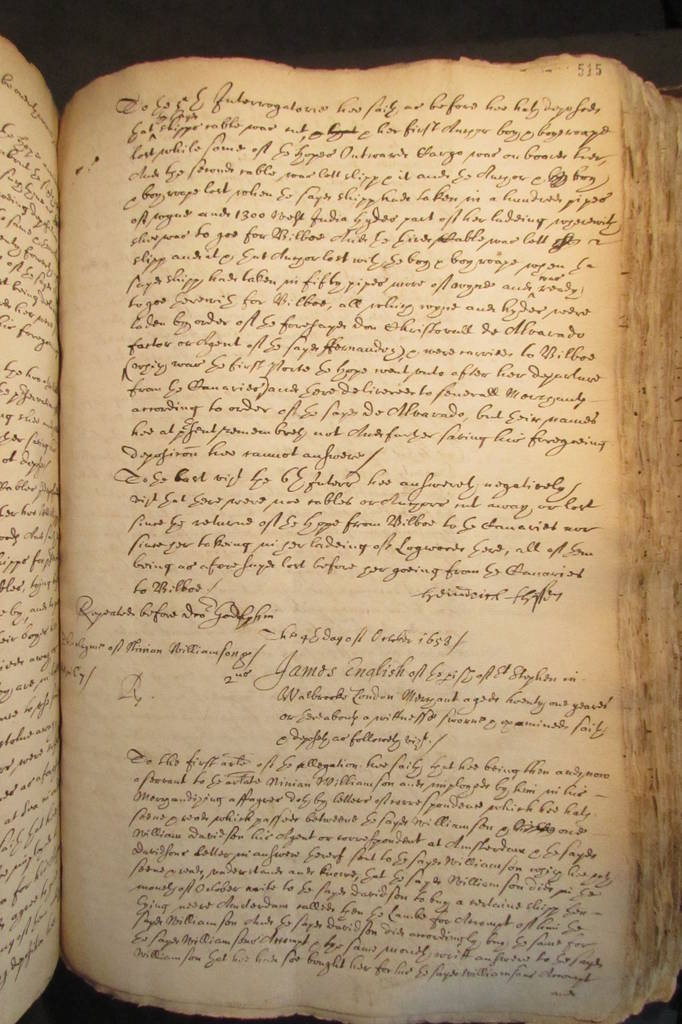 515
To the 5th Interrogatorie hee saith as before hee hath deposed
that the sayd shipps cable was cut p her first Anchor boy & boyroape
lost while some of the hopes Outwards Cargo was on board her,
And the second cable was lett slipp & it and the Anchor & boy
& boyroape lost when the sayd shipp had taken in a hundred pipes
of wyne and 1300 West India hydes part of her ladeing wherewith
shee was to goe for Bilboe And the third Cable was lett
slipp and it & that Anchor lost with the boy & boyroape when the
sayd shipp had taken in fifty pipes more of wyne and was ready
to goe therewith for Bilboe, all which wyne and hydes were
laden by order of the foresayd don Christovall de Alvarado
factor or Agent of the sayd ffernandes, & were carried to Bilboe
(which was the first Porte the hope went unto after her departure
from the Canaries) and there delivered to severall Merchants
according to order of the sayd de Alvarado, but their names
hee at present remembreth not And further saving his foregoeing
deposition hee cannot answere /
To the last vizt the 6th Interr hee answereth negatively /
vizt that there were noe cables or Anchors cut away, or lost
since the returne of the hope from Bilboe to the Canaries nor
since her takeing in her ladeing of Logwood there, all of them
being as aforesayd lost before her goeing from the Canaries
to Bilboe /
Repeated before doctor Godolphin
The 4th day of October 1653 /
of Ninian Williamson
2us
James English of the pish of St Stephen in
Walbrooke London Merchant aged twenty one yeares
or thereabouts a wittnesse sworne & examined saith
& deposeth as followeth vizt. /
To the first arle of the allegation hee saith that hee being then and now
a servant to the arlate Ninian Williamson and imployed by him in his
Merchandizing affayres doth by letters of correspondence which hee hath
seene & read which passed betweene the sayd Williamson & one
William davidson his Agent or correspondent at Amsterdam & the sayd
davidsons letter in answere thereof sent to the sayd Williamson which hee hath
seene & read, understand and knowe, that the sayd Williamson did in the
moneth of October write to the sayd davidson to buy a certaine shipp then
lying neere Amsterdam called then the Lambe for Accompt of him the
sayd Williamson And the sayd davidson did accordingly buy the same for
the sayd Williamsons Accompt & the same moneth writt answere to the sayd
Williamson that hee had soe bought her for his the sayd Williamsons Accompt
and